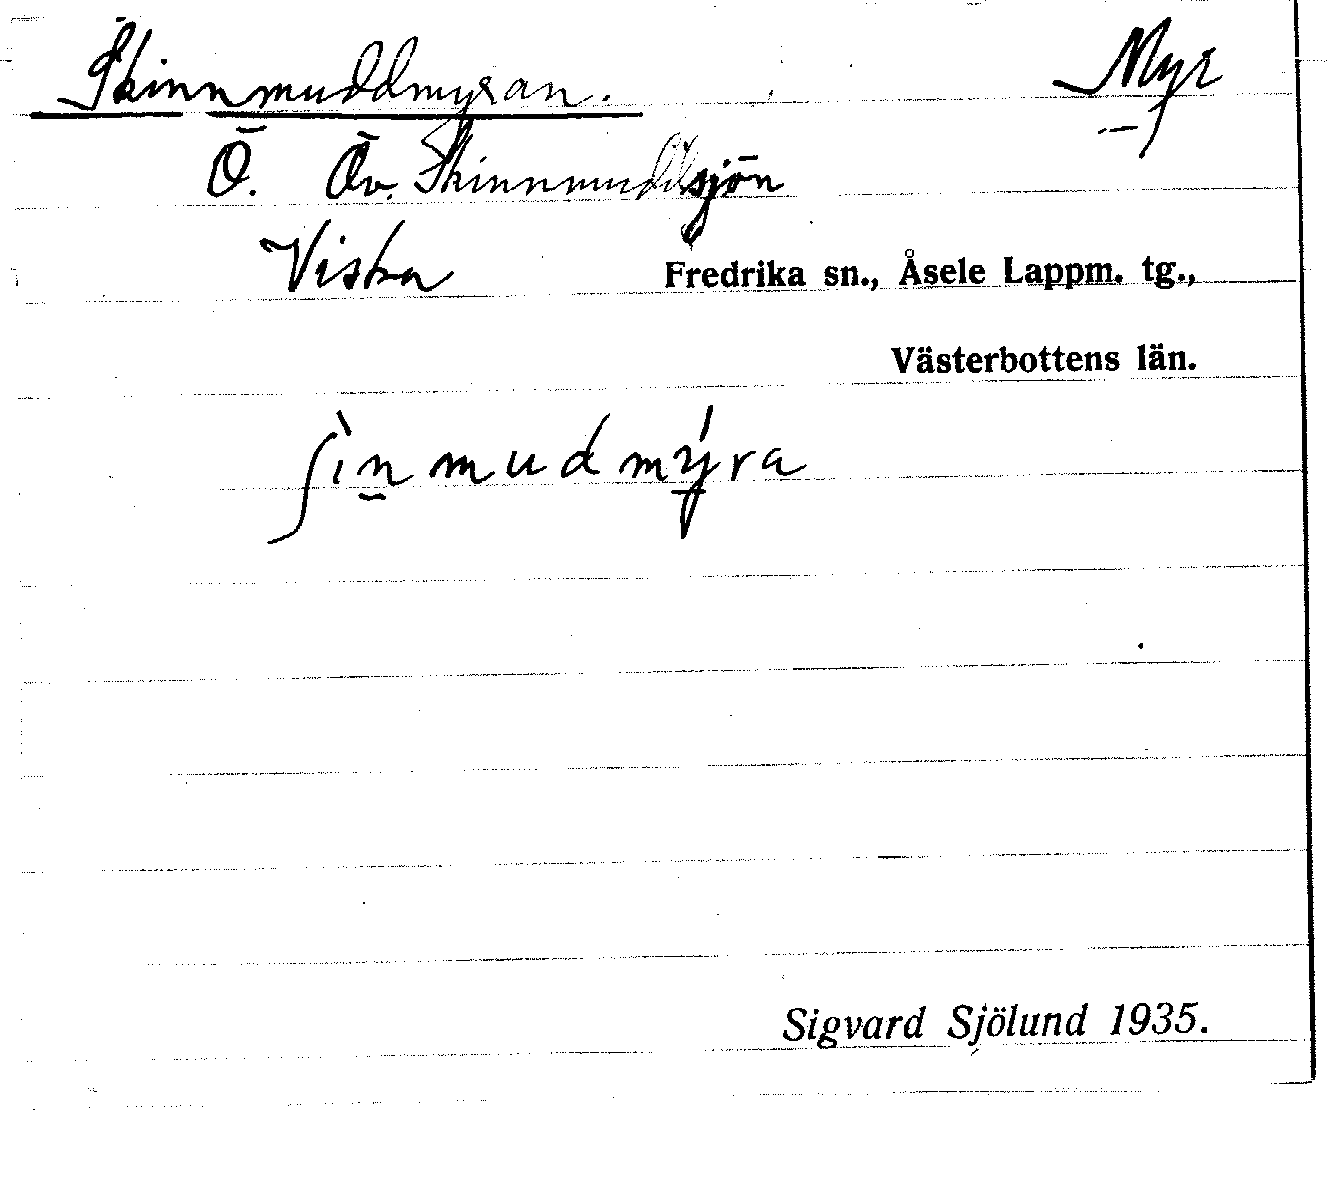 Skinnmuddmyran. Myr
Ö. Öv. Skinnmuddsjön
Viska Fredrika sn., Åsele Lappm. tg.,
Västerbottens län.
ʃìn̠mudmýra
Sigvard Sjölund 1935.